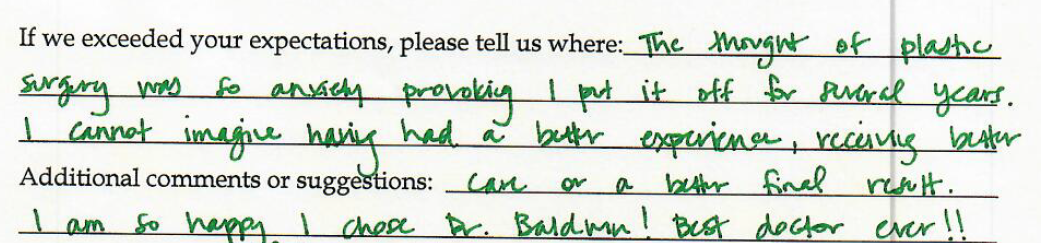 If we exceeded your expectations, please tell us where: The thought of plastic
surgery was so anxiety provoking I put it off for several years.
I cannot imagine having had a better experience, receiving better
Additional comments or suggestions: care or a better final result.
I am so happy I chose Dr. Baldwin! Best doctor ever!!